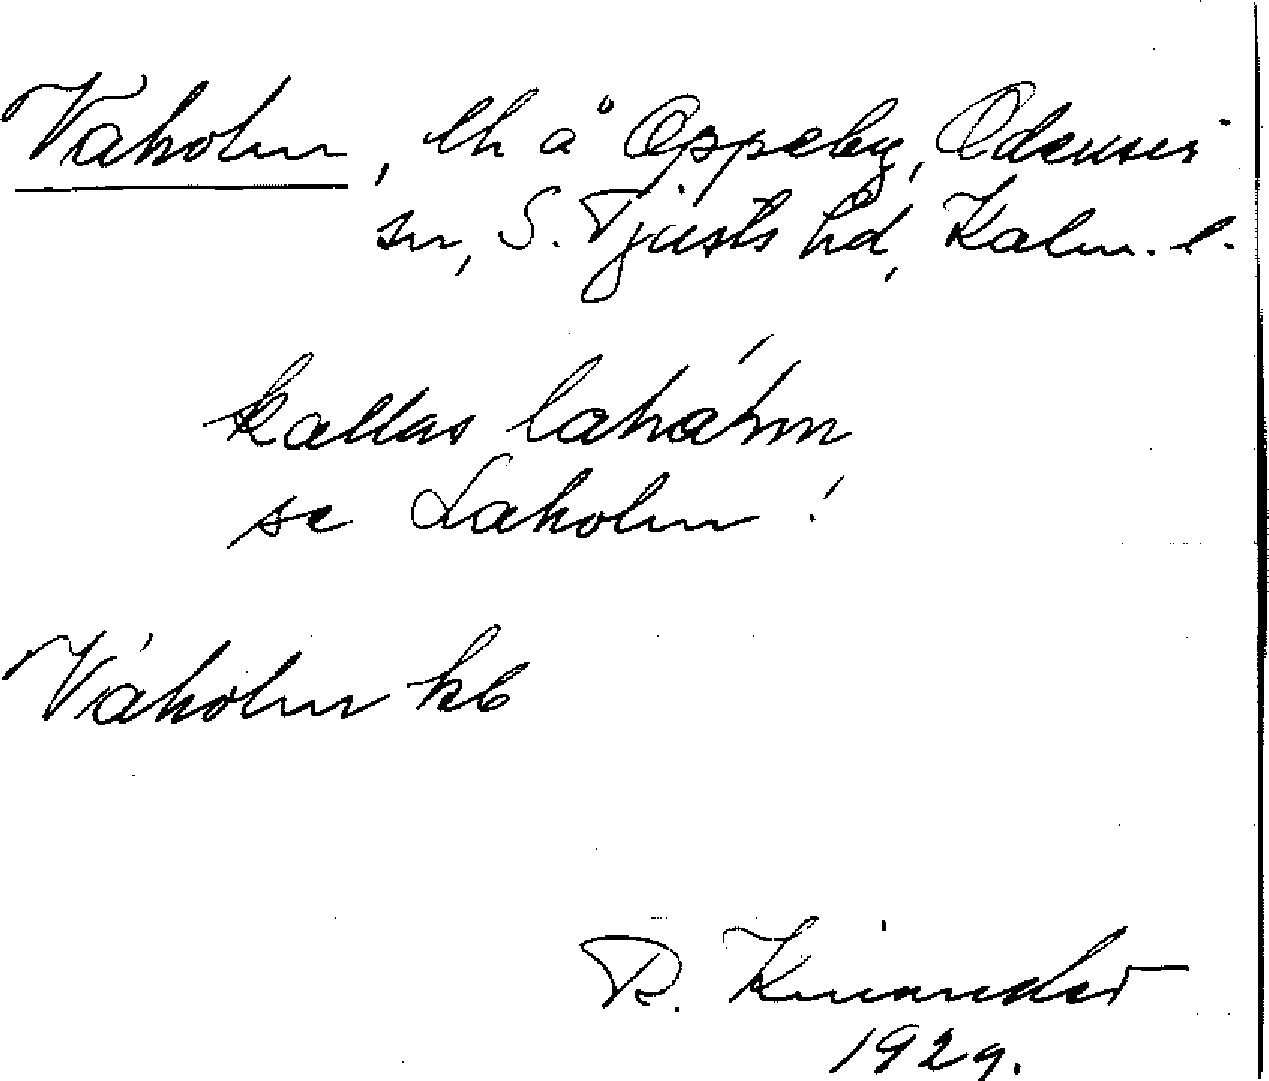 Vaholm, lh å Oppeby, Odensvi
sn, S. Tjusts hd, Kalm. l.
kallas lahahm
se Laholm!
Vaholm kb
R. Kinander
1929.